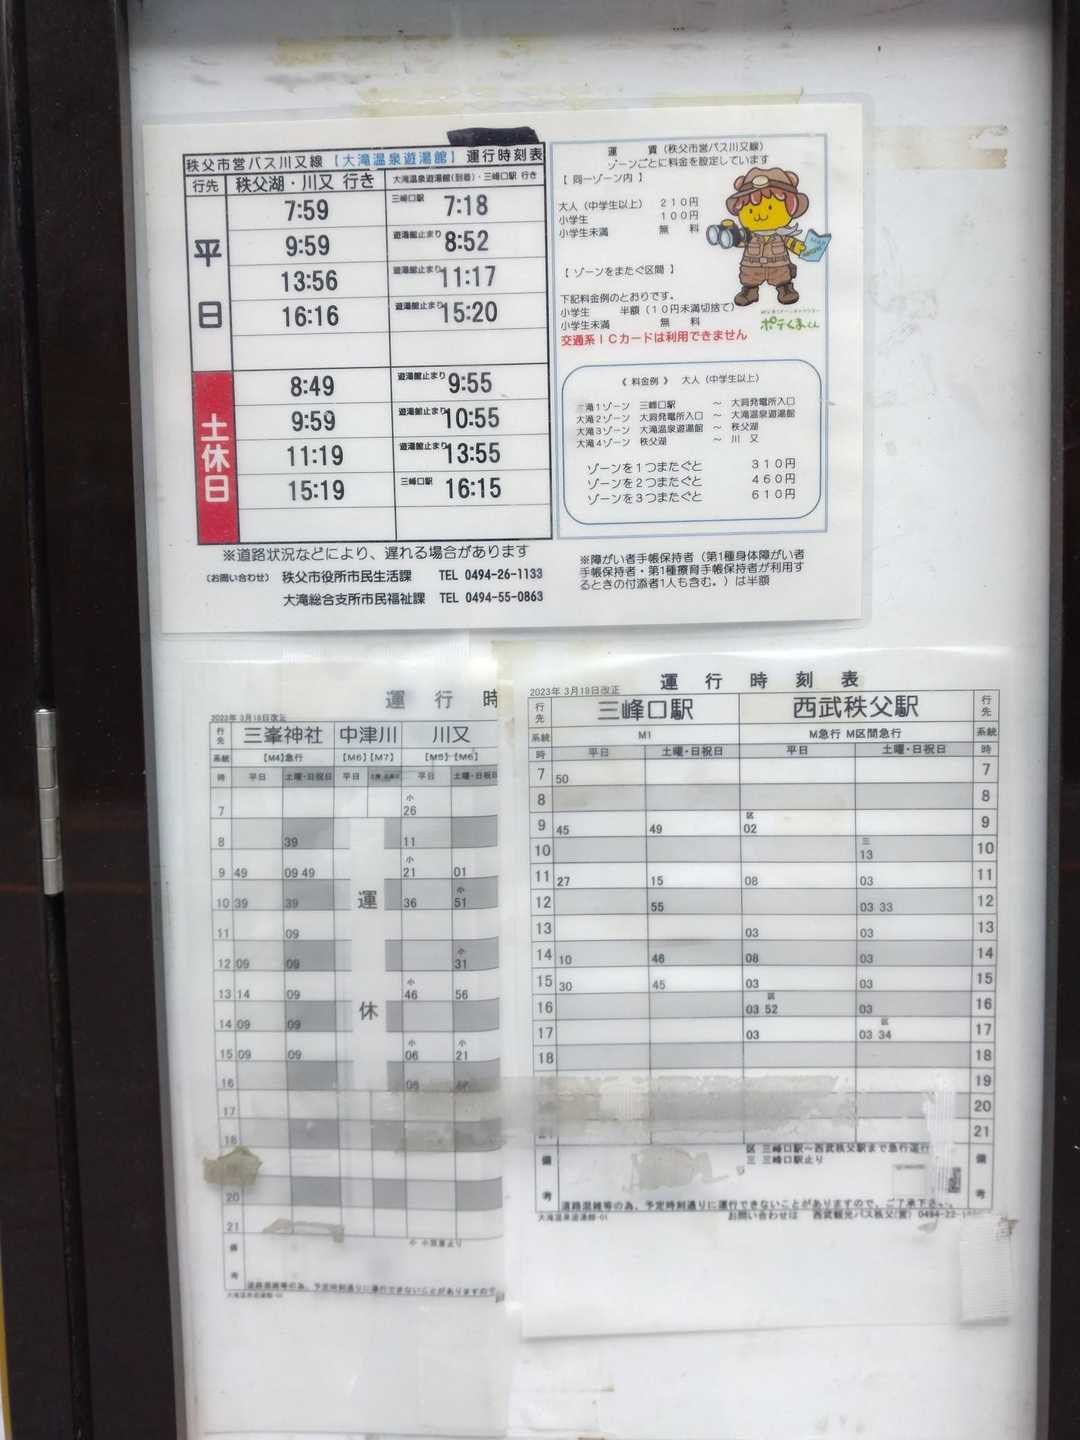 秩父市営バス川又線【大滝温泉遊湯館】運行時刻表
行先 秩父湖・川又 行き 大滝温泉遊湯館(到着)・三峰口駅 行き
平日
7:59 三峰口駅 7:18
9:59 遊湯館止まり 8:52
13:56 遊湯館止まり 11:17
16:16 遊湯館止まり 15:20
土休日
8:49 遊湯館止まり 9:55
9:59 遊湯館止まり 10:55
11:19 遊湯館止まり 13:55
15:19 三峰口駅 16:15
※道路状況などにより、遅れる場合があります
(お問い合わせ) 秩父市役所市民生活課 TEL 0494-26-1133
大滝総合支所市民福祉課 TEL 0494-55-0863
運 賃(秩父市営バス川又線)
ゾーンごとに料金を設定しています
【 同一ゾーン内 】
大人(中学生以上) 210円
小学生 100円
小学生未満 無 料
【 ゾーンをまたぐ区間 】
下記料金例のとおりです。
小学生 半額(10円未満切捨て)
小学生未満 無 料
交通系ICカードは利用できません
MAP
ポテくまくん
《 料金例 》 大人(中学生以上)
大滝1ゾーン 三峰口駅 ~ 大洞発電所入口
大滝2ゾーン 大洞発電所入口 ~ 大滝温泉遊湯館
大滝3ゾーン 大滝温泉遊湯館 ~ 秩父湖
大滝4ゾーン 秩父湖 ~ 川 又
ゾーンを1つまたぐと 310円
ゾーンを2つまたぐと 460円
ゾーンを3つまたぐと 610円
※障がい者手帳保持者(第1種身体障がい者
手帳保持者・第1種療育手帳保持者が利用す
るときの付添者1人も含む。)は半額
運 行 時
2023年 3月18日改正
行先 三峯神社 中津川 川又
系統 【M4】急行 【M6】【M7】 【M5】【M6】
時 平日 土曜・日祝日 平日 平日 土曜・日祝日
7 小26
8 39 11
9 49 09 49 小21 01
10 39 39 36 小51
11 09
12 09 09 小31
13 14 09 小46 56
14 09 09
15 09 09 小06 小21
16
17
18
20
21
運休
備考
道路混雑等の為、予定時刻通りに運行できないことがありますので
運 行 時 刻 表
2023年 3月18日改正
行先 三峰口駅 西武秩父駅 行先
系統 M1 M急行 M区間急行 系統
時 平日 土曜・日祝日 平日 土曜・日祝日 時
7 50 7
8 8
9 45 49 区02 9
10 三13 10
11 27 15 08 03 11
12 55 03 33 12
13 03 03 13
14 10 46 08 03 14
15 30 45 03 03 15
16 03 区52 03 16
17 03 03 区34 17
18 18
19
20
21
備考 区 三峰口駅~西武秩父駅まで急行運行 備考
三 三峰口駅止り
道路混雑等の為、予定時刻通りに運行できないことがありますので、ご了承下さい。
大滝温泉遊湯館-01 お問い合わせは 西武観光バス秩父(営) 0494-22-